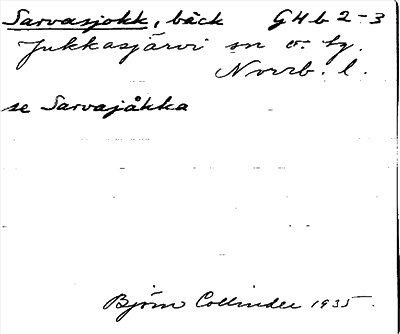 Sarvasjokk, bäck G4b 2-3
Jukkasjärvi sn o. tg.
Norrb. l.
se Sarvajåkka
Björn Collinder 1935.